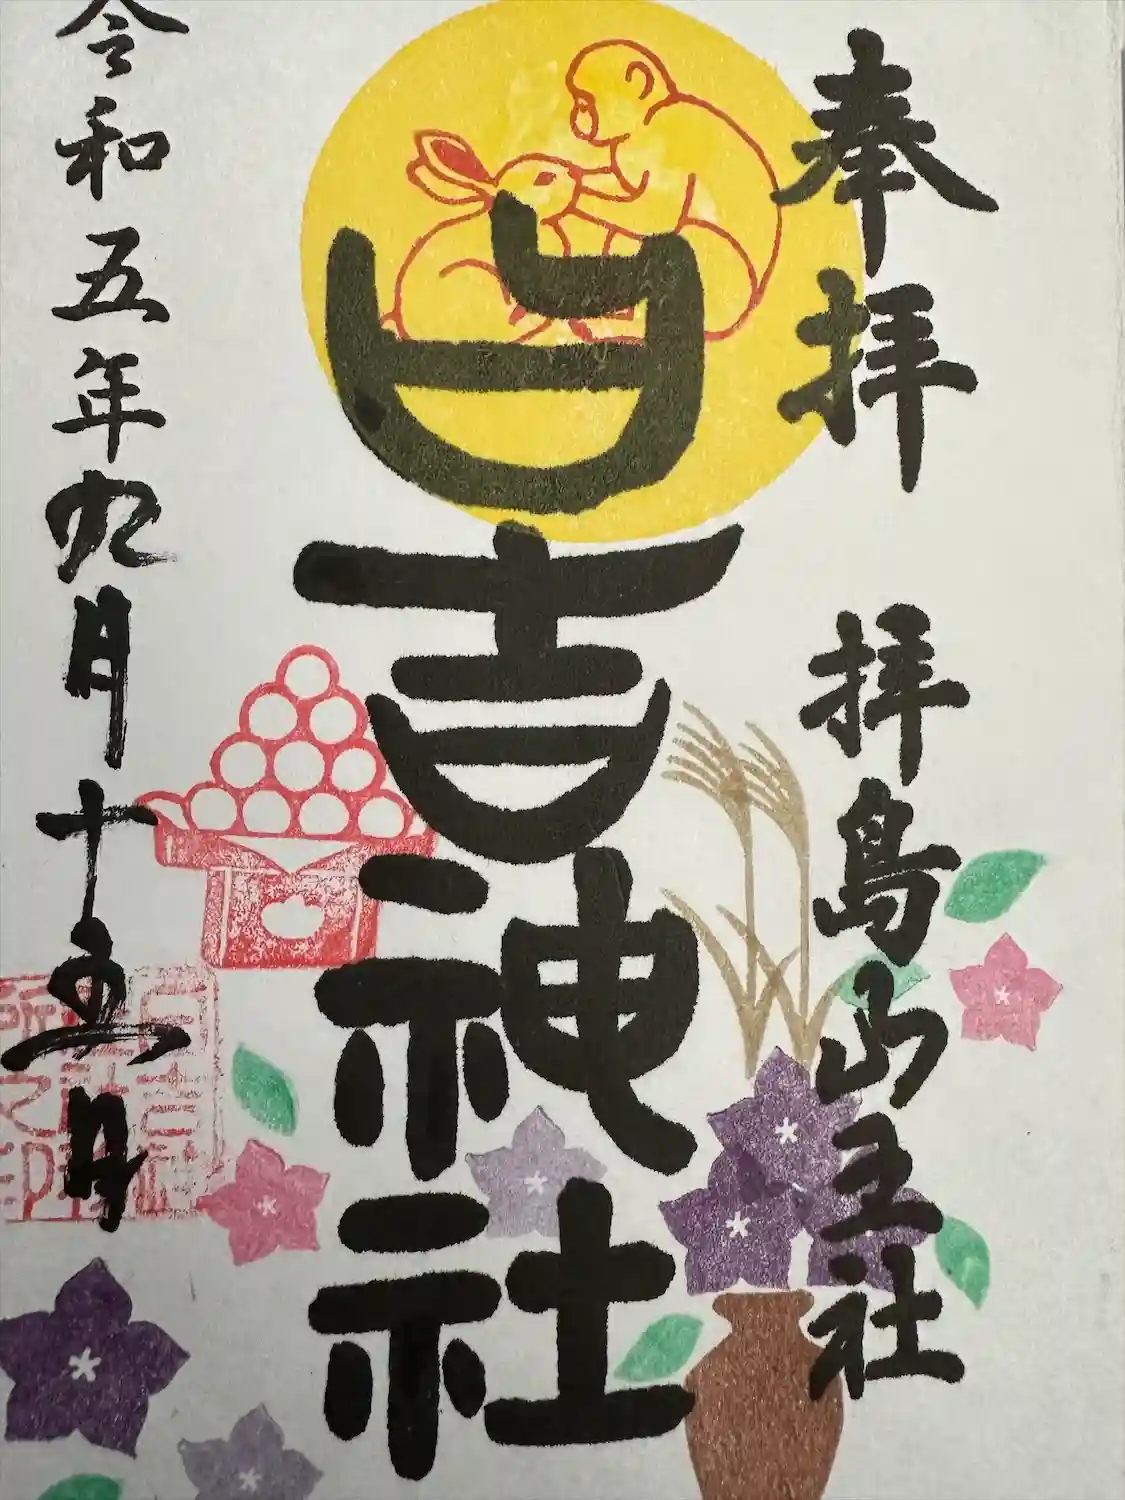 奉拝 拝島山王社
日吉神社
令和五年九月十五日